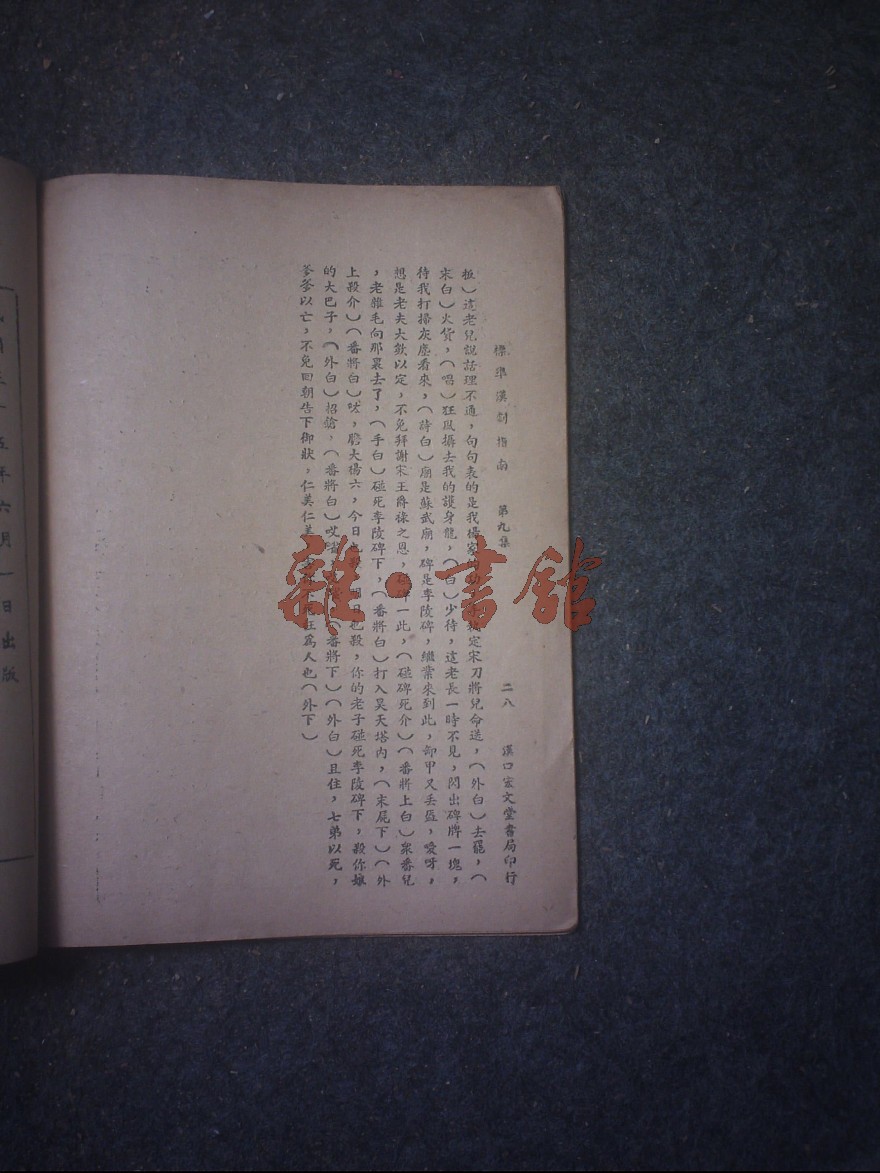 標準漢劇指南　第九集　二八　漢口宏文堂書局印行
板）這老兒說話理不通，句句表的是我楊家將定宋刀將兒命送，（外白）去罷，（
宋白）火貨，（唱）狂風攝去我的護身龍，（白）少待，這老長一時不見，閃出碑牌一塊，
待我打掃灰塵看來，（詩白）廟是蘇武廟，碑是李陵碑，繼業來到此，卸甲又丢盔，愛呀，
想是老夫大數以定，不免拜謝宋王爵祿之恩，碰碑一此，（碰碑死介）（番將上白）衆番兒
，老雜毛向那裏去了，（手白）碰死李陵碑下，（番將白）打入昊天塔內，（末屍下）（外
上殺介）（番將白）呔，胆大楊六，今日也殺，明日也殺，你的老子碰死李陵碑下，殺你娘
的大巴子，（外白）招鎗，（番將白）哎（番將下）（外白）且住，七弟以死，
爹爹以亡，不免回朝告下御狀，仁美仁美枉爲人也（外下）
五年六月一日出版
雜·書館